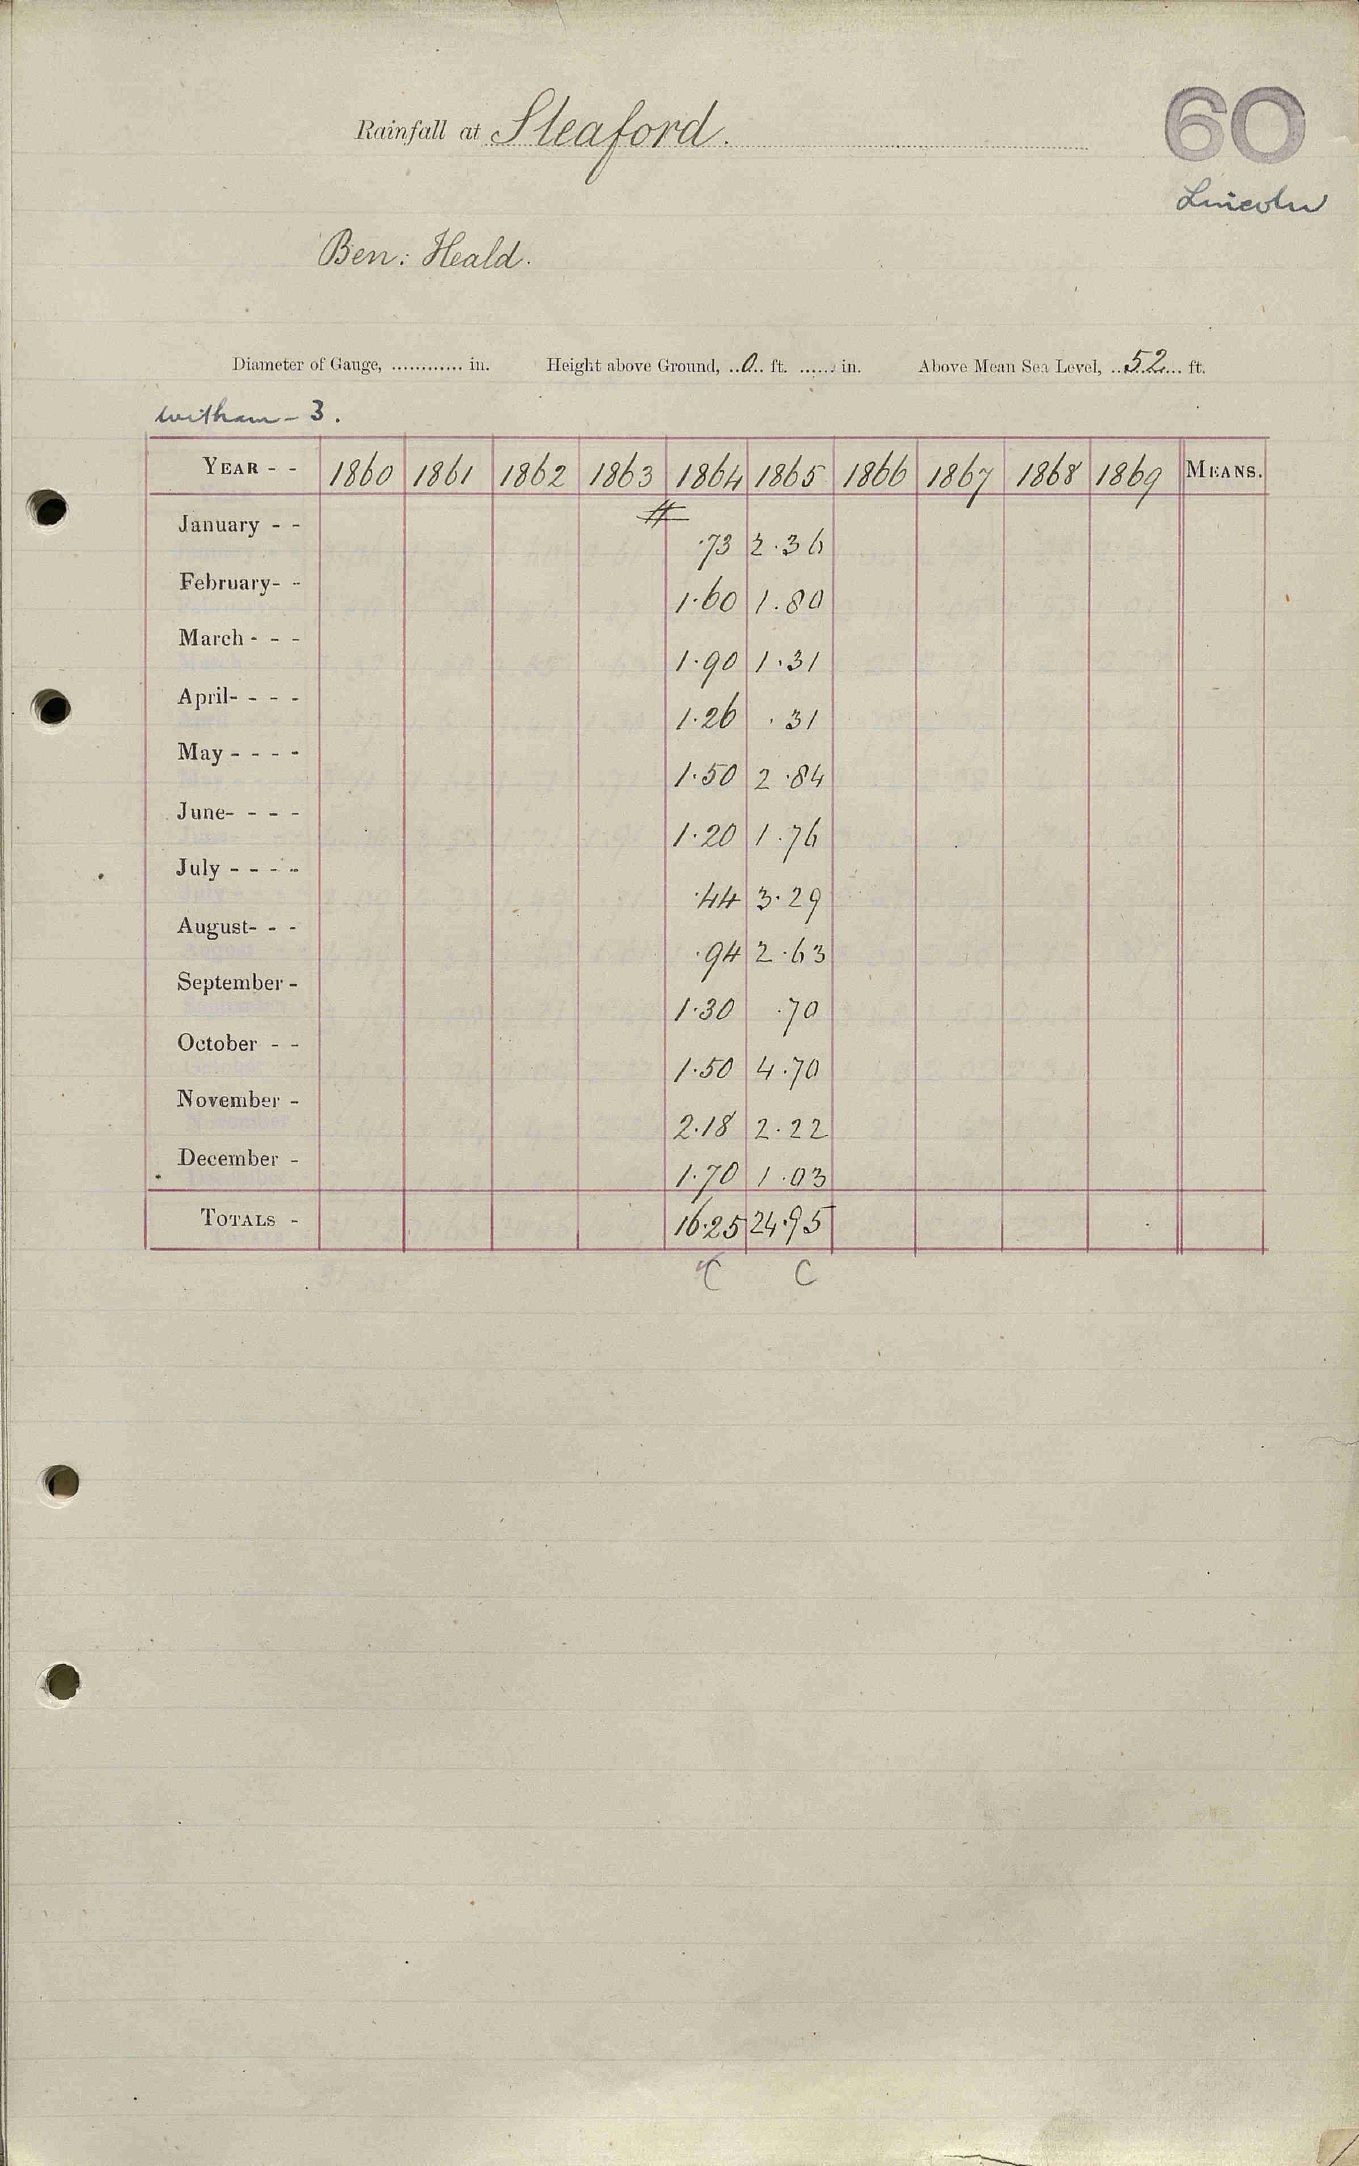 60
Rainfall at Sleaford.
Lincoln
Ben: Heald.
Diameter of Gauge, ............ in. Height above Ground, ..0.. ft. ...... in. Above Mean Sea Level, ..52... ft.
Witham - 3.
YEAR - - 1860 1861 1862 1863 1864 1865 1866 1867 1868 1869 MEANS.
January - - .73 2.36
February- - 1.60 1.80
March - - - 1.90 1.31
April- - - - 1.26 .31
May - - - - 1.50 2.84
June- - - - 1.20 1.76
July - - - - .44 3.29
August- - - .94 2.63
September - 1.30 .70
October - - 1.50 4.70
November - 2.18 2.22
December - 1.70 1.03
TOTALS - 16.25 24.95
C C